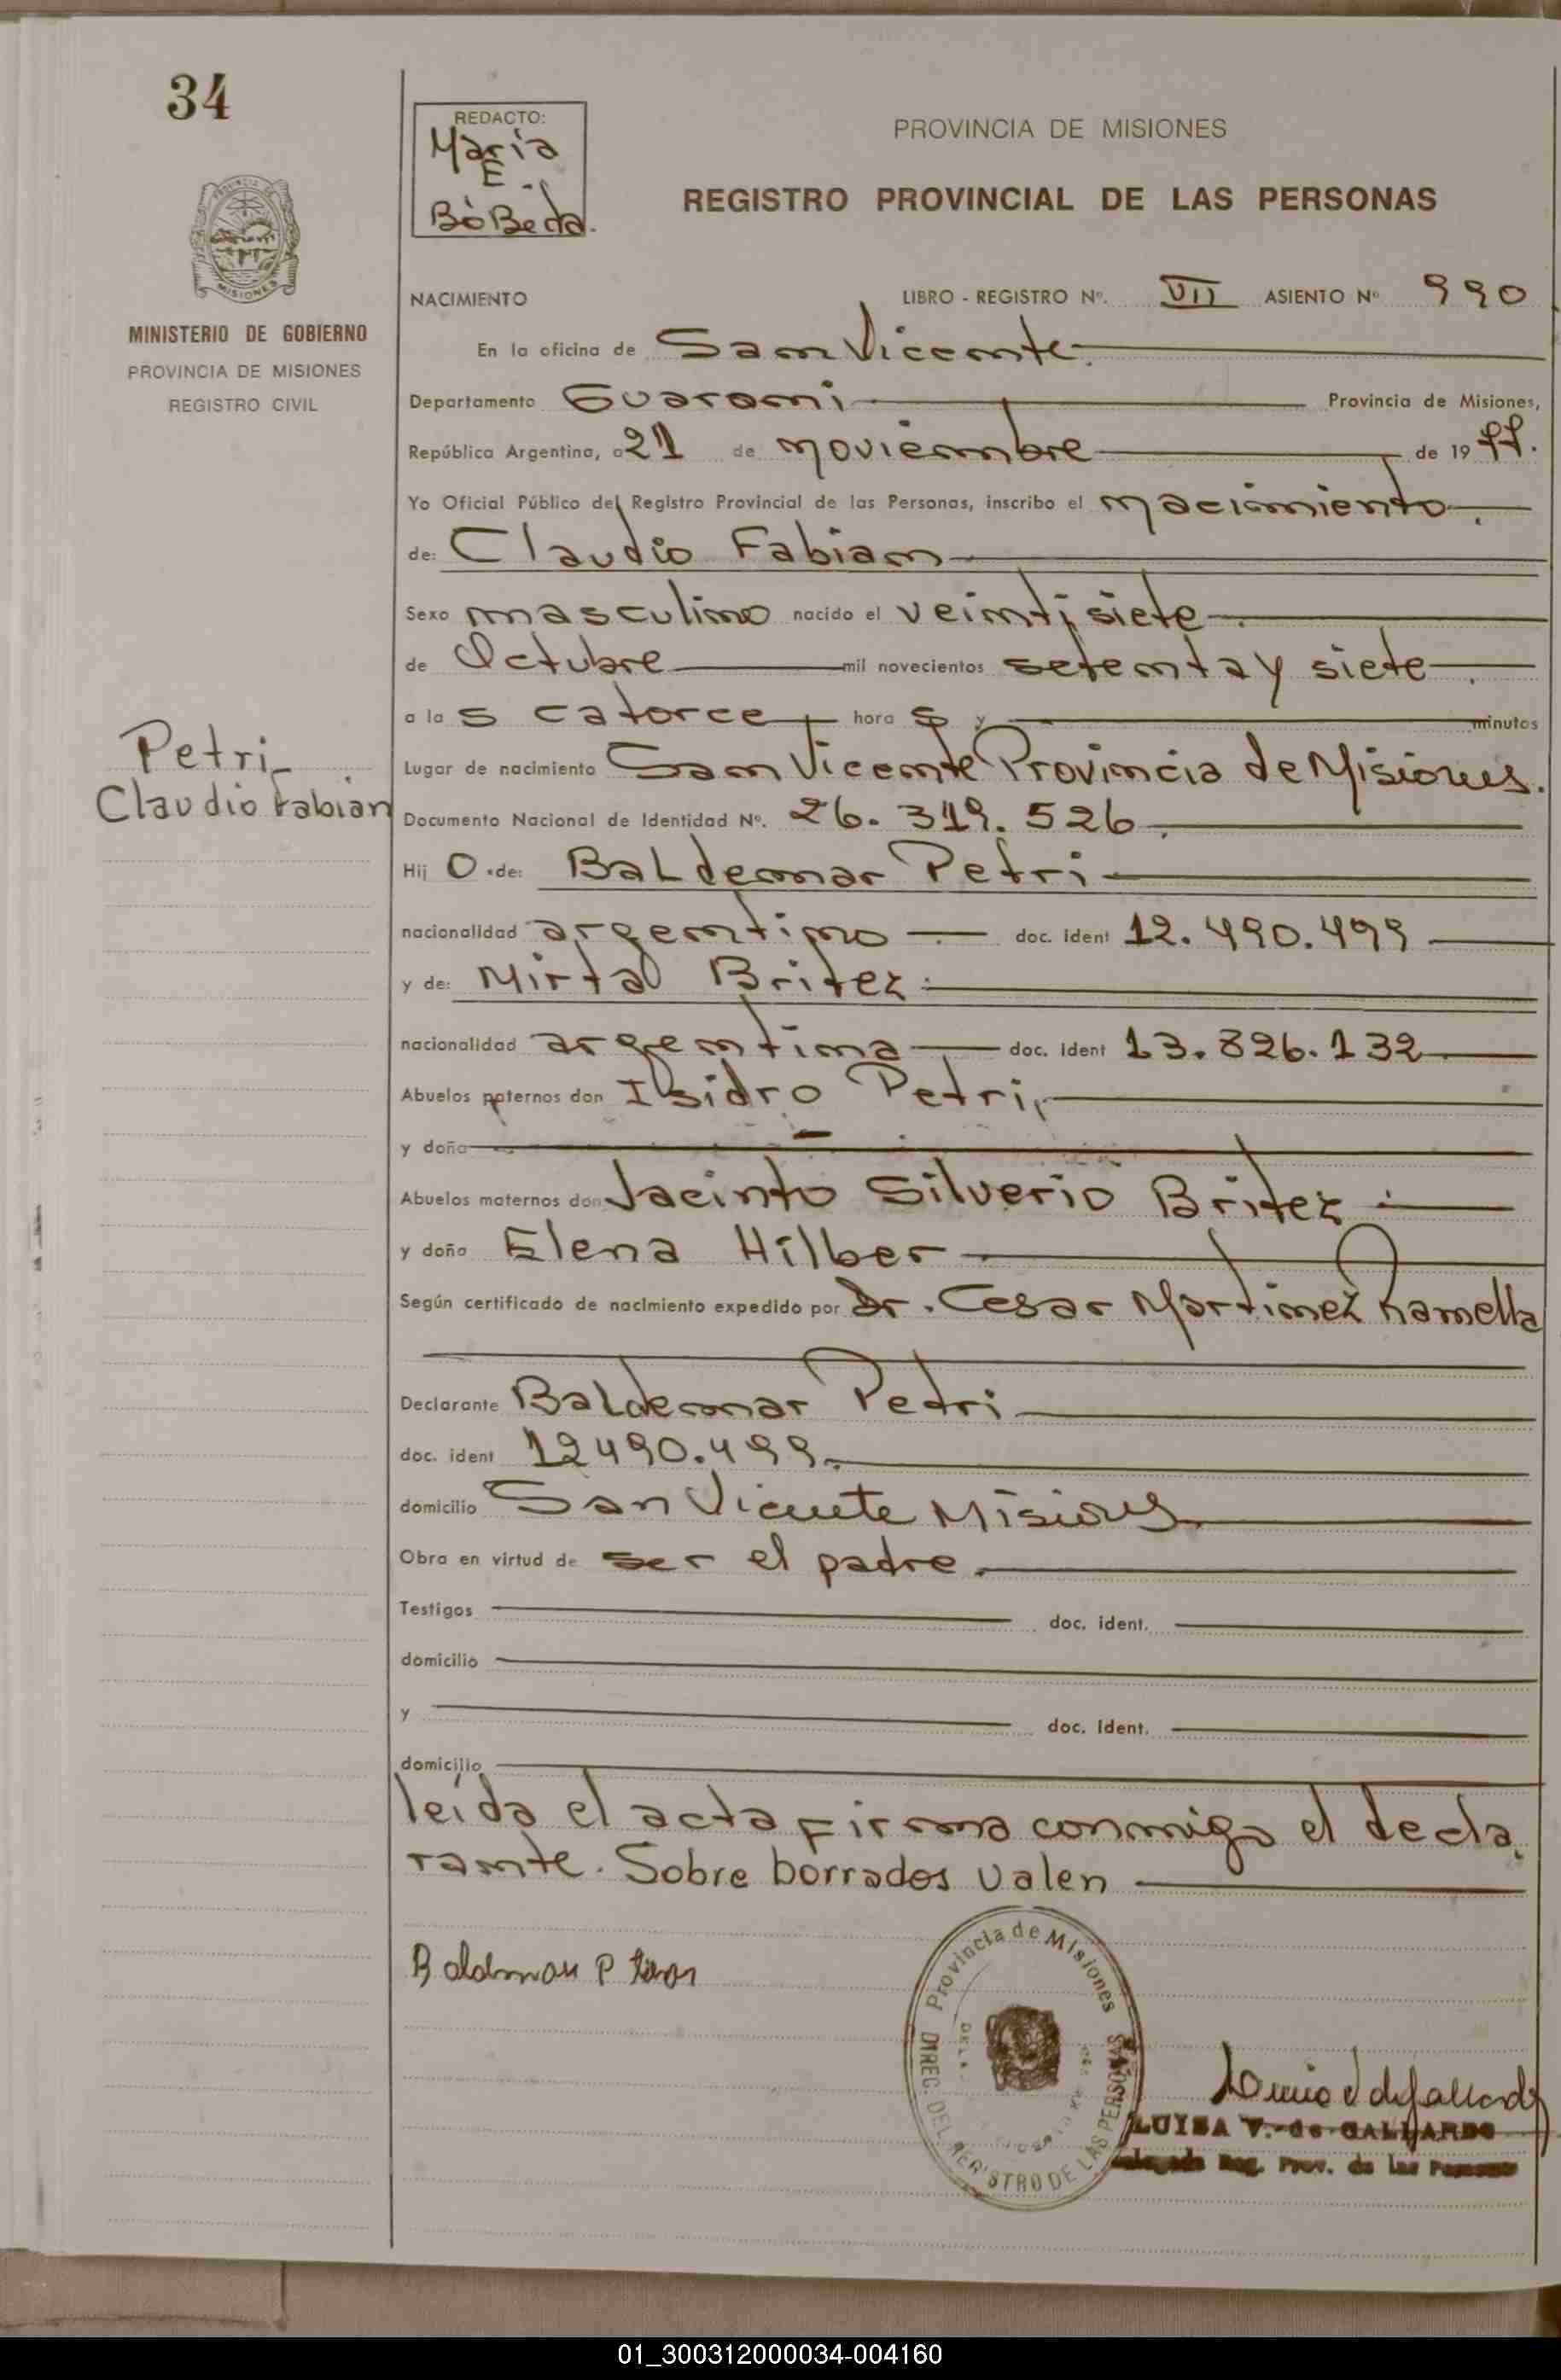 34
REDACTO:
Maria
E.
BòBeda.
PROVINCIA DE MISIONES
REGISTRO PROVINCIAL DE LAS PERSONAS
MISIONES
MINISTERIO DE GOBIERNO
PROVINCIA DE MISIONES
REGISTRO CIVIL
NACIMIENTO LIBRO - REGISTRO Nº. VII ASIENTO Nº 990
En la oficina de San Vicente.
Departamento Guarani Provincia de Misiones,
República Argentina, a 21 de noviembre de 1977.
Yo Oficial Público del Registro Provincial de las Personas, inscribo el nacimiento.
de: Claudio Fabian
Sexo masculino nacido el veintisiete.
de Octubre mil novecientos setenta y siete.
a la s catorce hora s y minutos
Petri,
Claudio Fabian
Lugar de nacimiento San Vicente Provincia de Misiones.
Documento Nacional de Identidad Nº. 26. 319. 526.
Hij o de: BaLdemar Petri
nacionalidad argentino doc. ident 12. 490. 499
y de: Mirta Britez.
nacionalidad argentina doc. ident 13. 826. 132
Abuelos paternos don Isidro Petri,
y doña
Abuelos maternos don Jacinto Silverio Britez
y doña Elena Hilber
Según certificado de nacimiento expedido por Dr. Cesar Martinez Ramella
Declarante BaLdemar Petri
doc. ident 12490.499.
domicilio San Vicente Misiones
Obra en virtud de ser el padre.
Testigos doc. ident.
domicilio
y doc. ident.
domicilio
leida el acta firma conmigo el decla
rante. Sobre borrados valen
Provincia de Misiones
DIREC. DEL REGISTRO DE LAS PERSONAS
LUISA V. de GALLARDO
Delegada Reg. Prov. de las Personas
01_300312000034-004160